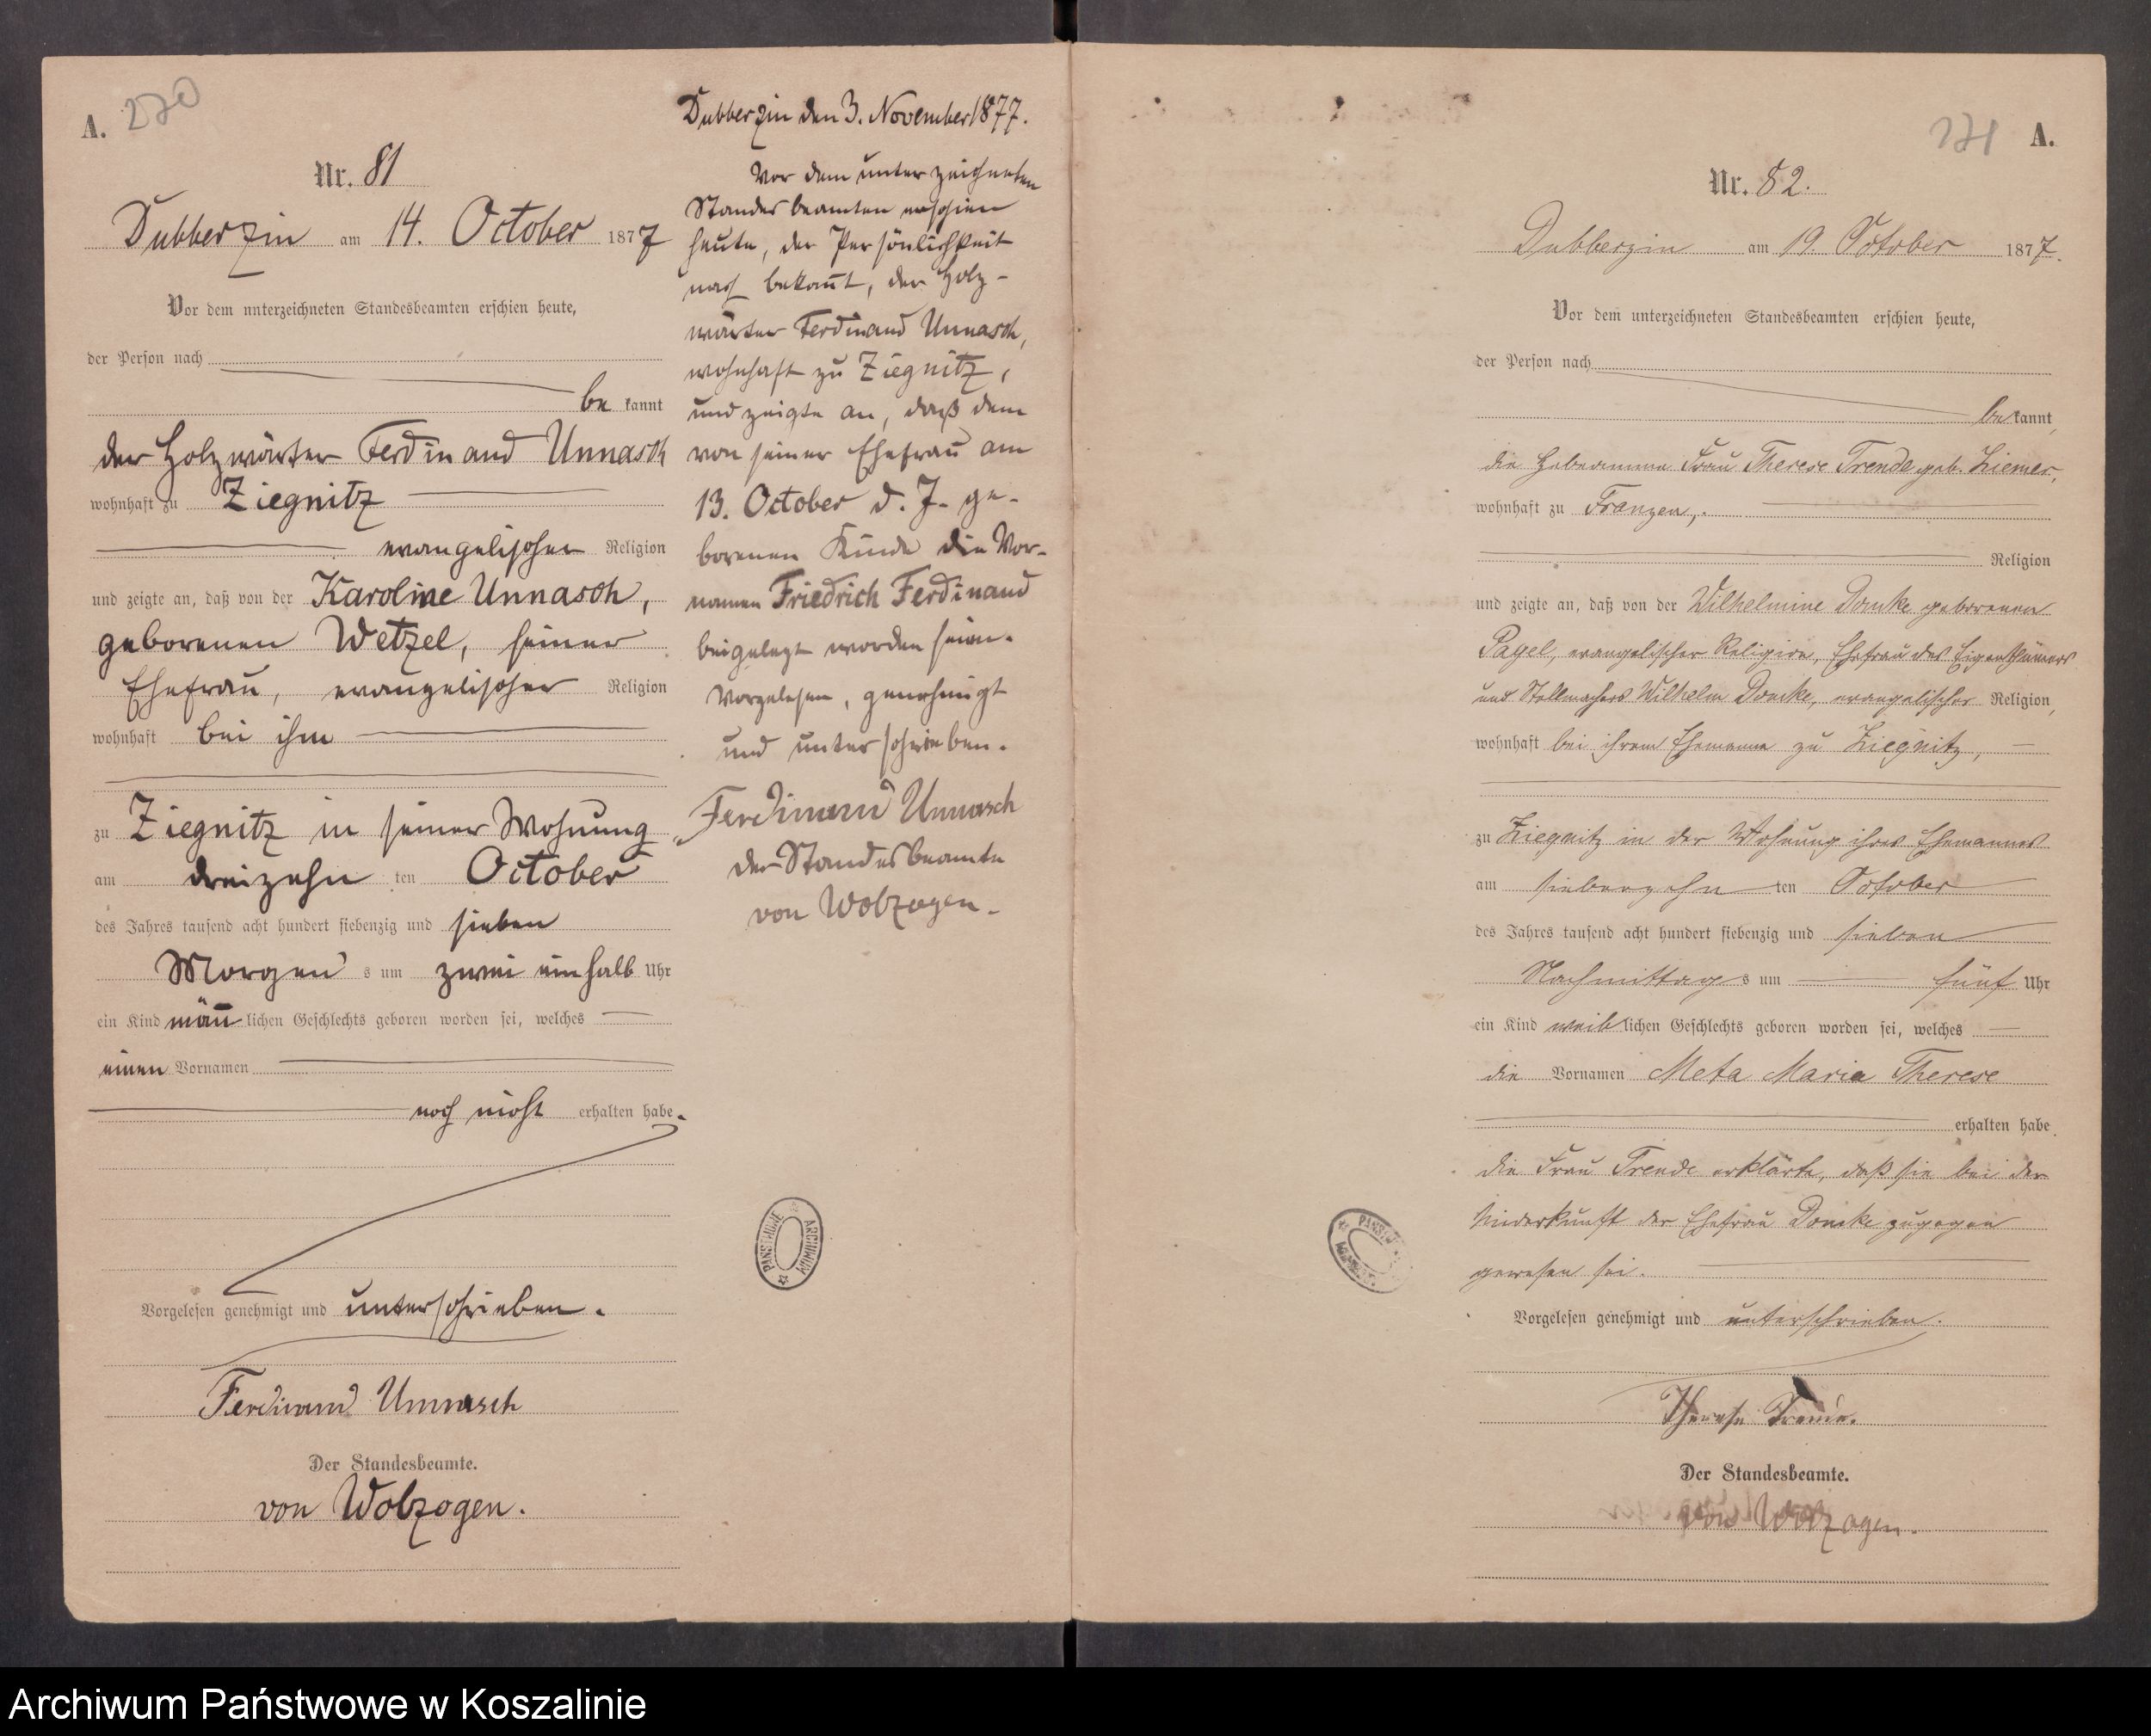 A. 270
Nr. 81
Dubberzin am 14. October 1877
Vor dem unterzeichneten Standesbeamten erschien heute,
der Person nach
be kannt
der Holzwärter Ferdinand Unnasch
wohnhaft zu Ziegnitz
evangelischer Religion
und zeigte an, daß von der Karoline Unnasch,
geborenen Wetzel, seiner
Ehefrau, evangelischer Religion
wohnhaft bei ihm
zu Ziegnitz in seiner Wohnung
am dreizehn ten October
des Jahres tausend acht hundert siebenzig und sieben
Morgen s um zwei ein halb Uhr
ein Kind män̄ lichen Geschlechts geboren worden sei, welches
einen Vornamen
noch nicht erhalten habe.
Vorgelesen genehmigt und unterschrieben.
Ferdinand Unnasch
Der Standesbeamte.
von Wolzogen.
Dubberzin den 3. November 1877.
Vor dem unterzeichneten
Standesbeamten erschien
heute, der Persönlichkeit
nach bekan̄t, der Holz-
wärter Ferdinand Unnasch,
wohnhaft zu Ziegnitz,
und zeigte an, daß dem
von seiner Ehefrau am
13. October d. J. ge-
borenen Kinde die Vor-
namen Friedrich Ferdinand
beigelegt worden seien.
Vorgelesen, genehmigt
und unterschrieben.
Ferdinand Unnasch
der Standesbeamte
von Wolzogen.
ARCHIWUM PAŃSTWOWE
271 A.
Nr. 82.
Dubberzin am 19. October 1877.
Vor dem unterzeichneten Standesbeamten erschien heute,
der Person nach
be kannt,
die Hebeamme Frau Therese Trende geb. Ziemer,
wohnhaft zu Franzen,
Religion
und zeigte an, daß von der Wilhelmine Domke geborenen
Pagel, evangelischer Religion, Ehefrau des Eigenthümers
und Stellmachers Wilhelm Domke, evangelischer Religion,
wohnhaft bei ihrem Ehemanne zu Ziegnitz,
zu Ziegnitz in der Wohnung ihres Ehemannes
am siebenzehn ten October
des Jahres tausend acht hundert siebenzig und sieben
Nachmittag s um fünf Uhr
ein Kind weib lichen Geschlechts geboren worden sei, welches
die Vornamen Meta Maria Therese
erhalten habe.
die Frau Trende erklärte, daß sie bei der
Niederkunft der Ehefrau Domke zugegen
gewesen sei.
Vorgelesen genehmigt und unterschrieben.
Therese Trende.
Der Standesbeamte.
von Wolzogen.
Archiwum Państwowe w Koszalinie